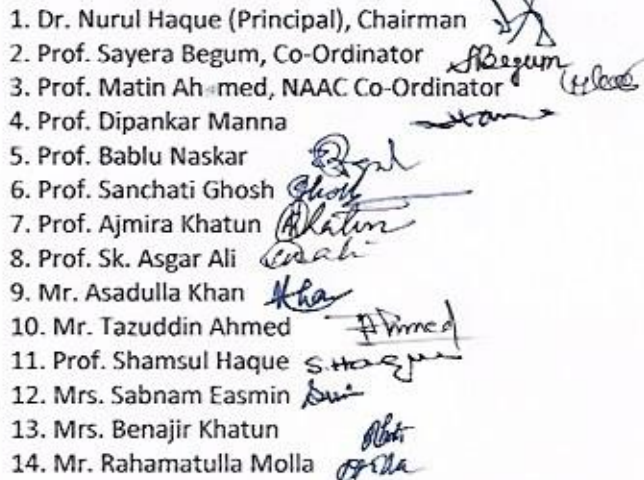 1. Dr. Nurul Haque (Principal), Chairman
2. Prof. Sayera Begum, Co-Ordinator SBegum
3. Prof. Matin Ahmed, NAAC Co-Ordinator
4. Prof. Dipankar Manna
5. Prof. Bablu Naskar
6. Prof. Sanchati Ghosh Ghosh
7. Prof. Ajmira Khatun Khatun
8. Prof. Sk. Asgar Ali
9. Mr. Asadulla Khan
10. Mr. Tazuddin Ahmed Ahmed
11. Prof. Shamsul Haque S. Haque
12. Mrs. Sabnam Easmin
13. Mrs. Benajir Khatun
14. Mr. Rahamatulla Molla